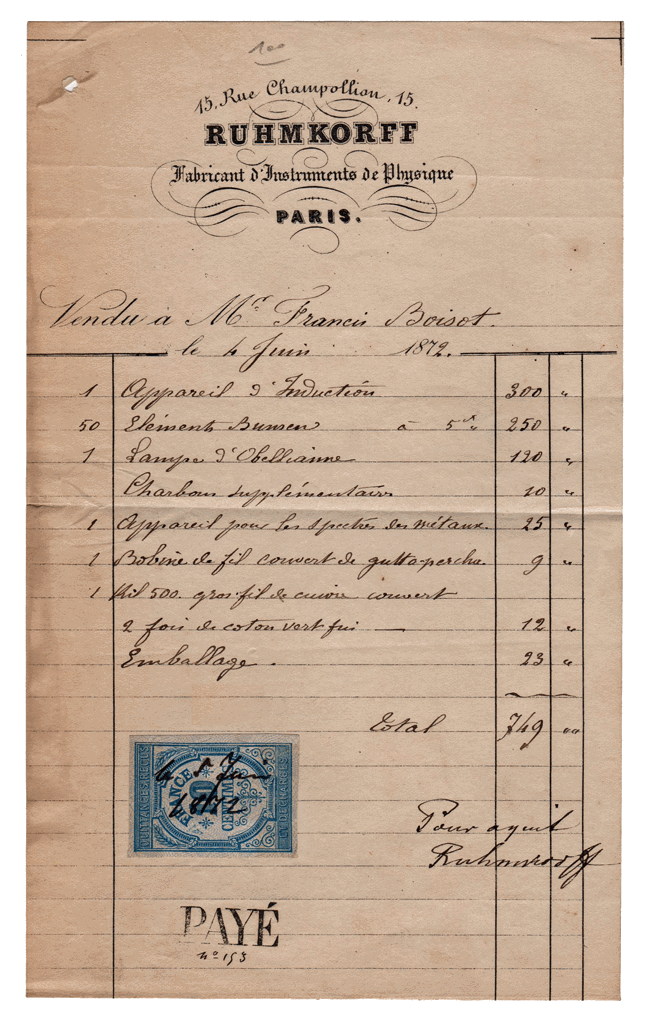 100
15, Rue Champollion, 15.
RUHMKORFF
Fabricant d'Instruments de Physique
PARIS.
Vendu à Mr Francis Boisot.
le 4 Juin 1872.
1 Appareil d'Induction 300 "
50 Eléments Bunsen à 5 " 250 "
1 Lampe d'Obellianne 120 "
Charbons supplémentaires 10 "
1 Appareil pour les spectres des métaux. 25 "
1 Bobine de fil couvert de gutta-percha. 9 "
1 Kil 500. gros fil de cuivre couvert
2 fois de coton vert fin — 12 "
Emballage. 23 "
Total 749 "
QUITTANCES, REÇUS
ET DÉCHARGES
FRANCE
10
CENTIMES
Juin
1872
Pour aquit
Ruhmkorff
PAYÉ
n° 153